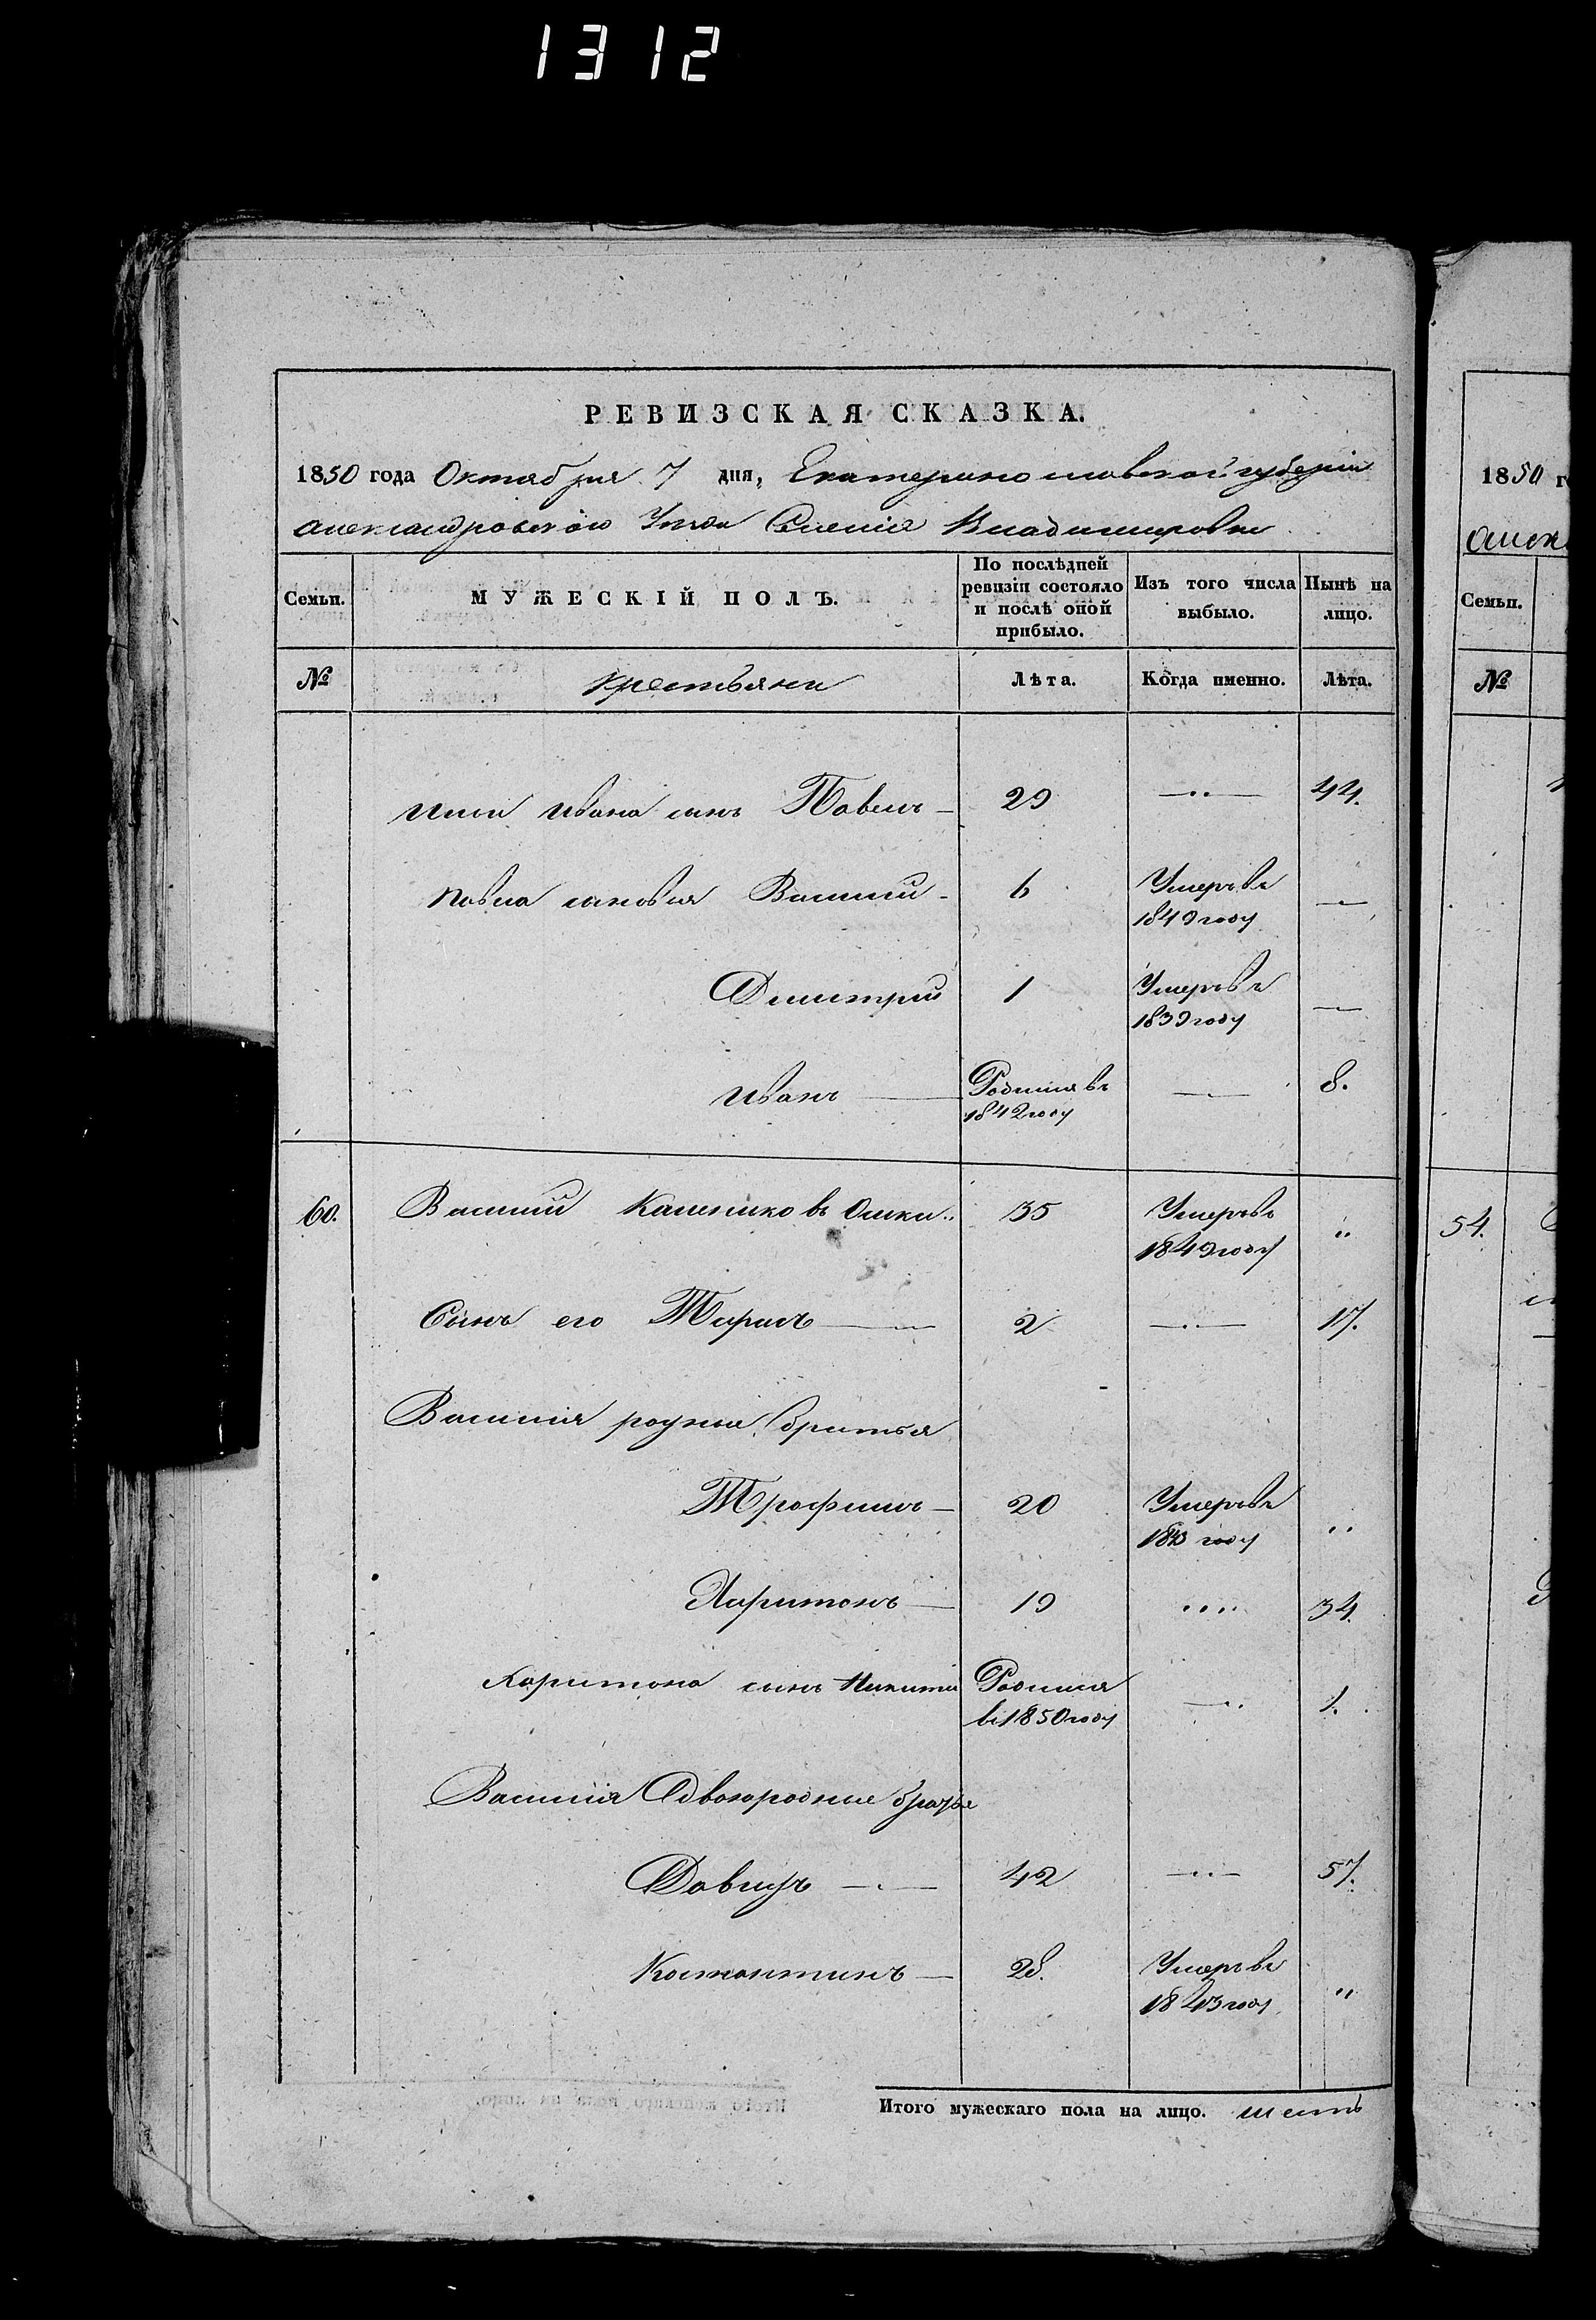 1312
РЕВИЗСКАЯ СКАЗКА.
1850 года Октября 7 дня, Екатеринославской губерніи
Александровскаго Уезда Селенія Владимировки
Семьи. МУЖЕСКІЙ ПОЛЪ. По послѣдней ревизіи состояло и послѣ оной прибыло. Изъ того числа выбыло. Нынѣ на лицо.
№ крестьяни Лѣта. Когда именно. Лѣта.
Ивана сынъ Павелъ 29 44.
Павла сыновья Василий 6 Умеръ въ 1849 году
Димитрий 1 Умеръ въ 1839 году
Иванъ Родился въ 1842 году 8.
60. Василий 35 Умеръ въ 1849 году
Сынъ его 2 17.
Василия родные братья
Трофимъ 20 Умеръ въ 1843 году
Харитонъ 19 34.
Харитона сынъ Никита Родился въ 1850 году 1.
Василия Двоюродные братье
Давидъ 42 57.
Костантинъ 28. Умеръ въ 1843 году
Итого мужескаго пола на лицо. шесть
1850
Семьи.
№
54.